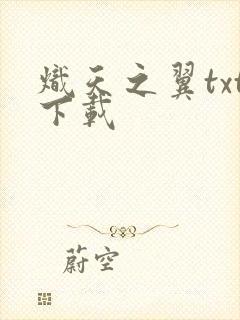 熾天之翼txt
下載
蔚空